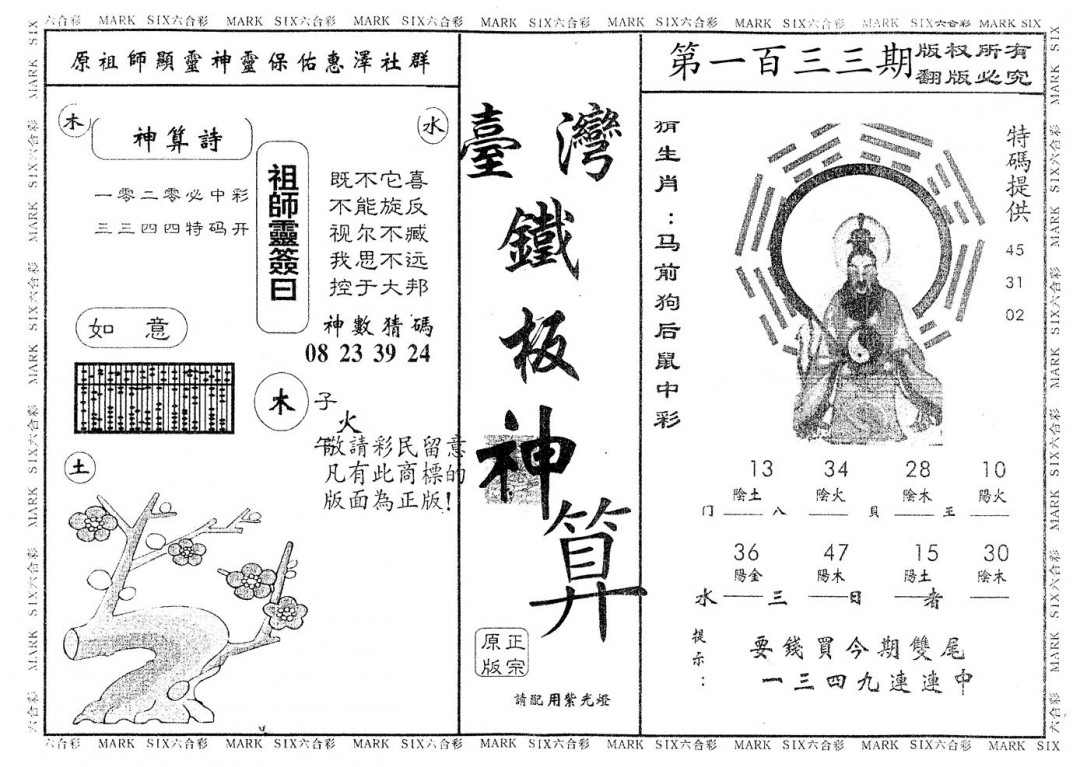 六合彩 MARK SIX六合彩 MARK SIX六合彩 MARK SIX六合彩 MARK SIX六合彩 MARK SIX六合彩 MARK SIX六合彩 MARK SIX六合彩 MARK SIX
原祖師顯靈神靈保佑惠澤社群
木
神算詩
水
一零二零必中彩
三三四四特码开
祖師靈簽曰
既不它喜
不能旋反
视尔不臧
我思不远
控于大邦
神數猜碼
08 23 39 24
如意
木
子
火
午
敬請彩民留意
凡有此商標的
版面為正版!
土
臺灣
鐵
板
神
算
正宗
原版
請配用紫光燈
第一百三三期
版权所有
翻版必究
猜生肖:马前狗后鼠中彩
特碼提供
45
31
02
13 34 28 10
陰土 陰火 陰木 陽火
门 八 貝 王
36 47 15 30
陽金 陽木 陽土 陰木
水 三 日 者
提示:
要錢買今期雙尾
一三四九連連中
六合彩 MARK SIX六合彩 MARK SIX六合彩 MARK SIX六合彩 MARK SIX六合彩 MARK SIX六合彩 MARK SIX六合彩 MARK SIX六合彩 MARK SIX